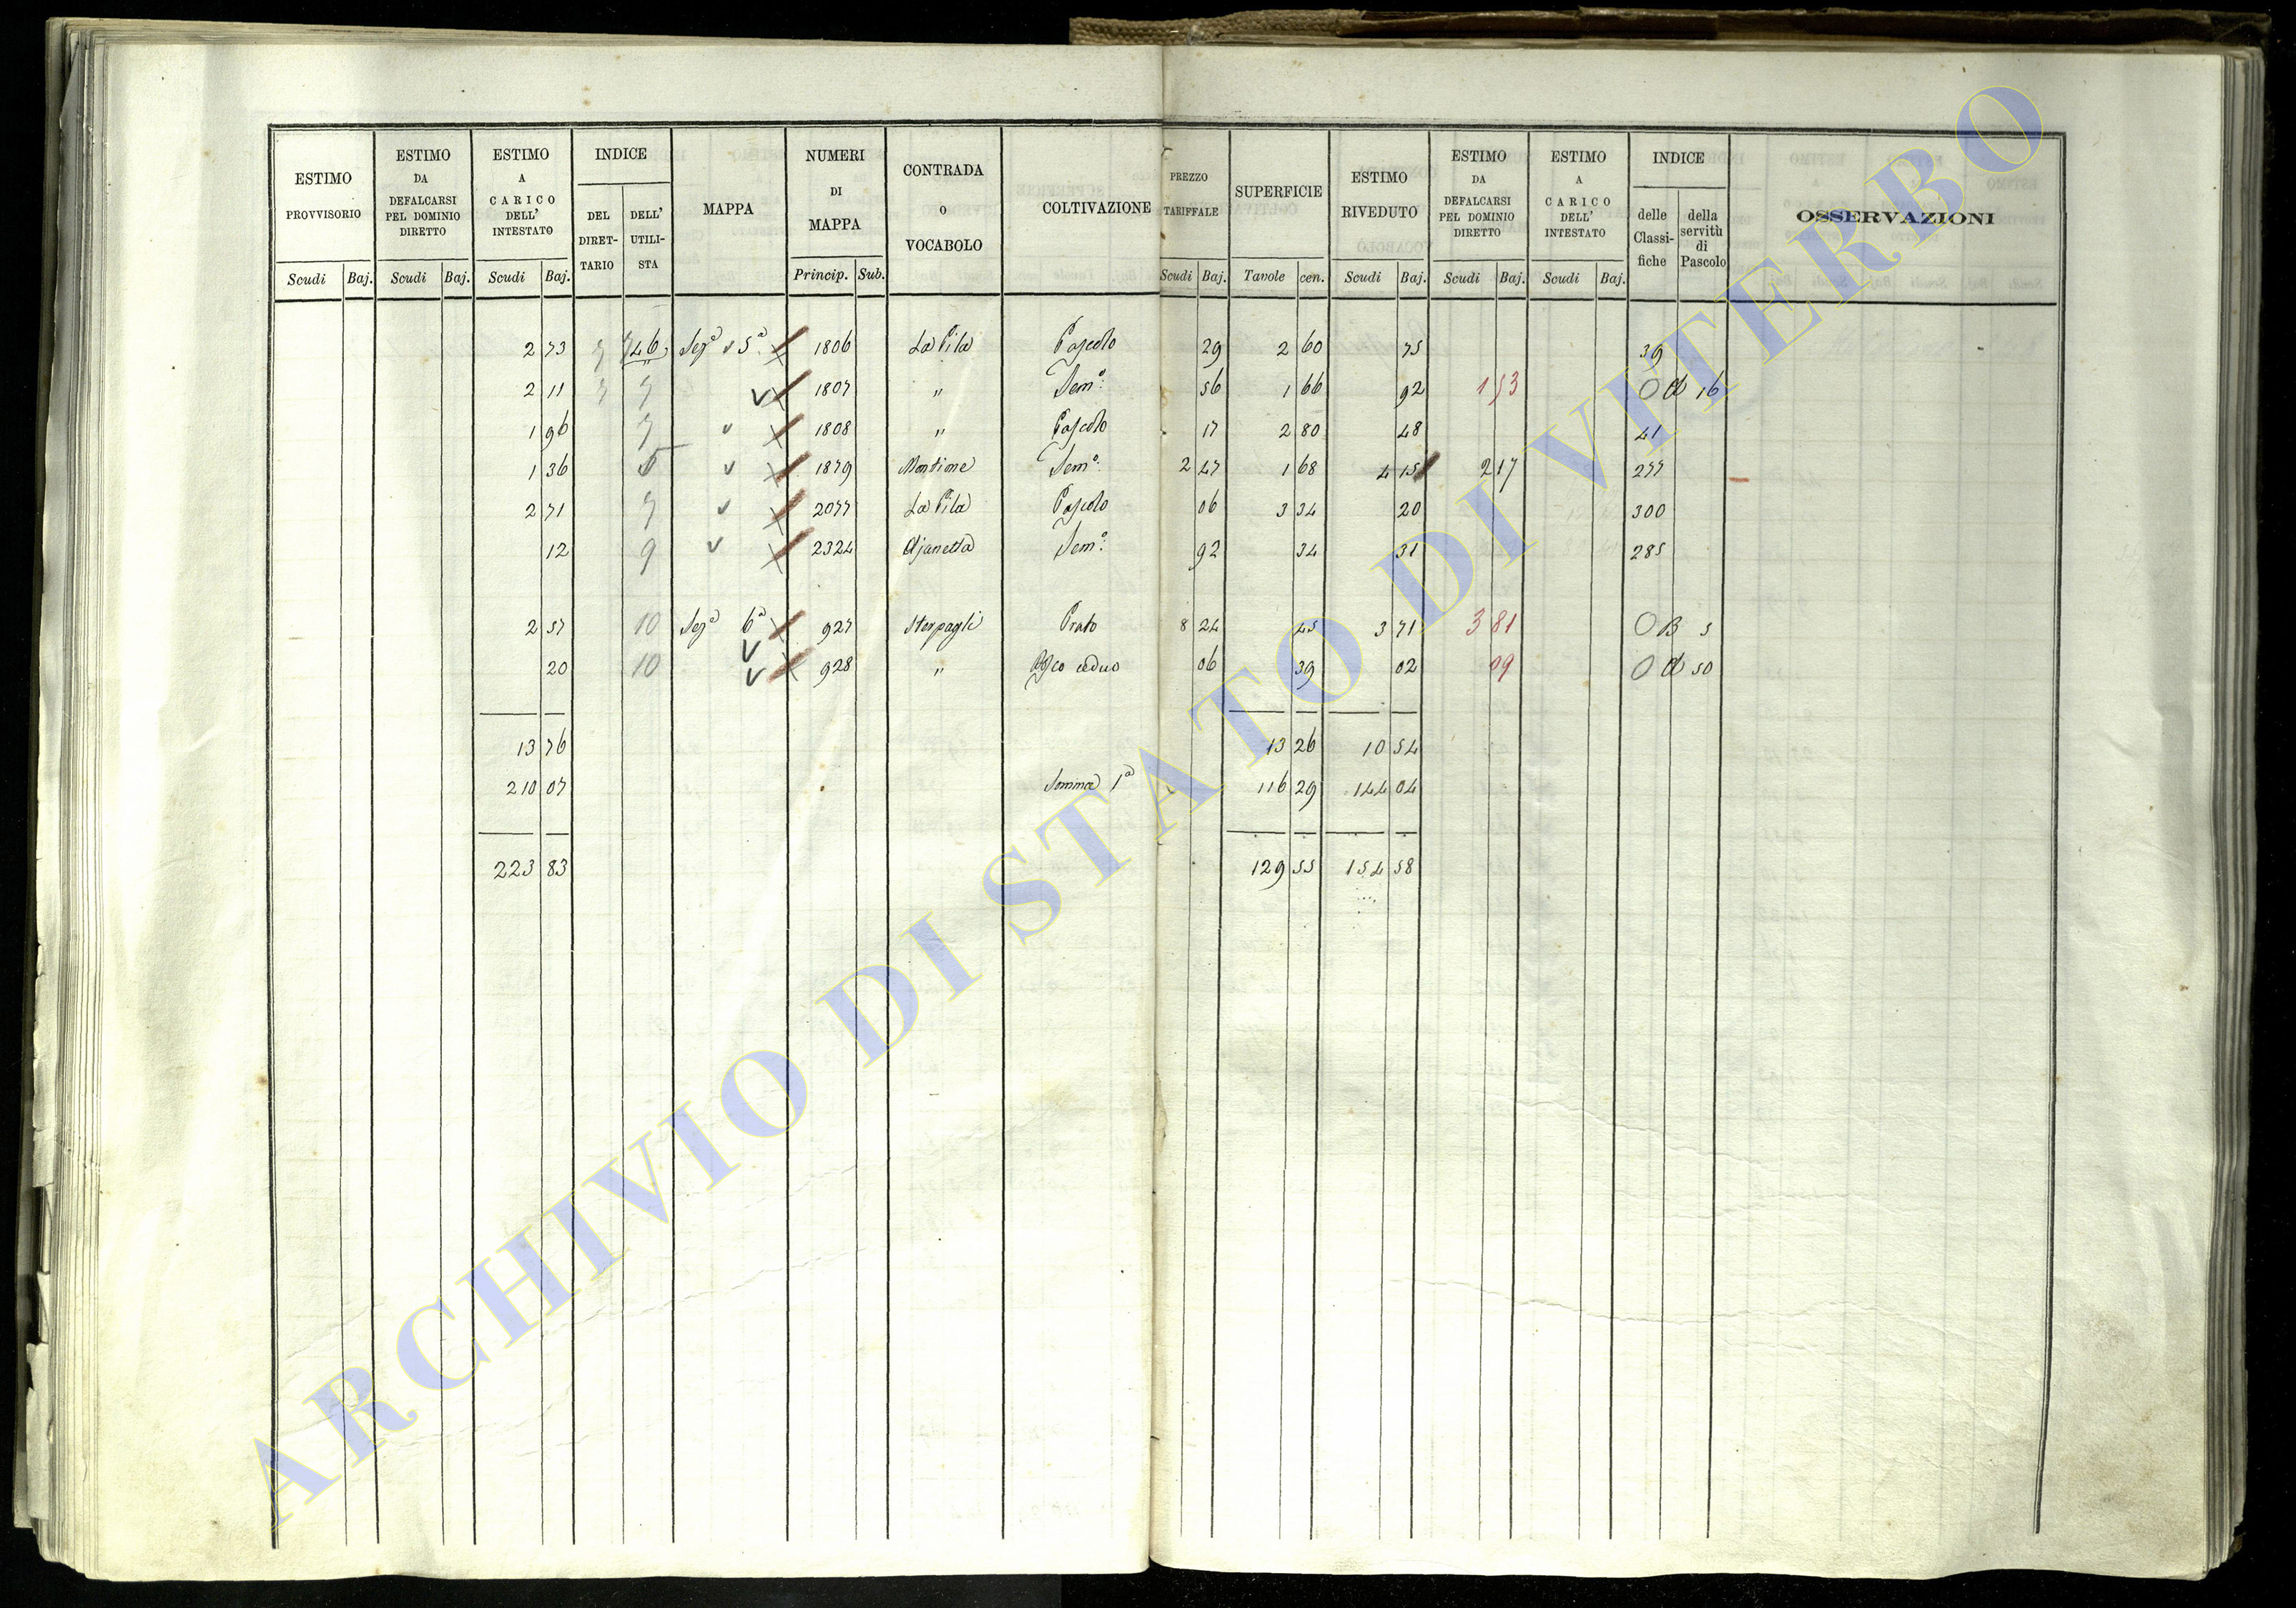 ESTIMO PROVVISORIO | ESTIMO DA DEFALCARSI PEL DOMINIO DIRETTO | ESTIMO A CARICO DELL' INTESTATO | INDICE DEL DIRET-TARIO | DELL' UTILI-STA | MAPPA | NUMERI DI MAPPA | CONTRADA O VOCABOLO | COLTIVAZIONE | PREZZO TARIFFALE | SUPERFICIE | ESTIMO RIVEDUTO | ESTIMO DA DEFALCARSI PEL DOMINIO DIRETTO | ESTIMO A CARICO DELL' INTESTATO | INDICE delle Classi-fiche | della servitù di Pascolo | OSSERVAZIONI
Scudi | Baj. | Scudi | Baj. | Scudi | Baj. | Princip. | Sub. | Scudi | Baj. | Tavole | cen. | Scudi | Baj. | Scudi | Baj. | Scudi | Baj.
2 73 | 7 | 46 | Sez.ª 5ª | 1806 | La Pila | Pascolo | 29 | 2 60 | 75 | 39
2 11 | 7 | 7 | 1807 | " | Sem.º | 56 | 1 66 | 92 | 1 53 | O d 16
1 96 | 7 | 1808 | " | Pascolo | 17 | 2 80 | 48 | 41
1 36 | 5 | 1879 | Montione | Sem.º | 2 47 | 1 68 | 4 15 | 2 17 | 277
2 71 | 7 | 2077 | La Pila | Pascolo | 06 | 3 34 | 20 | 300
12 | 9 | 2324 | Sem.º | 92 | 34 | 31 | 285
2 57 | 10 | Sez.ª 6ª | 927 | Sterpagli | Prato | 8 24 | 45 | 3 71 | 3 81 | O B 5
20 | 10 | 928 | " | Bosco ceduo | 06 | 39 | 02 | 09 | O d 50
13 76 | 13 26 | 10 54
210 07 | Somma 1ª | 116 29 | 144 04
223 83 | 129 55 | 154 58
ARCHIVIO DI STATO DI VITERBO